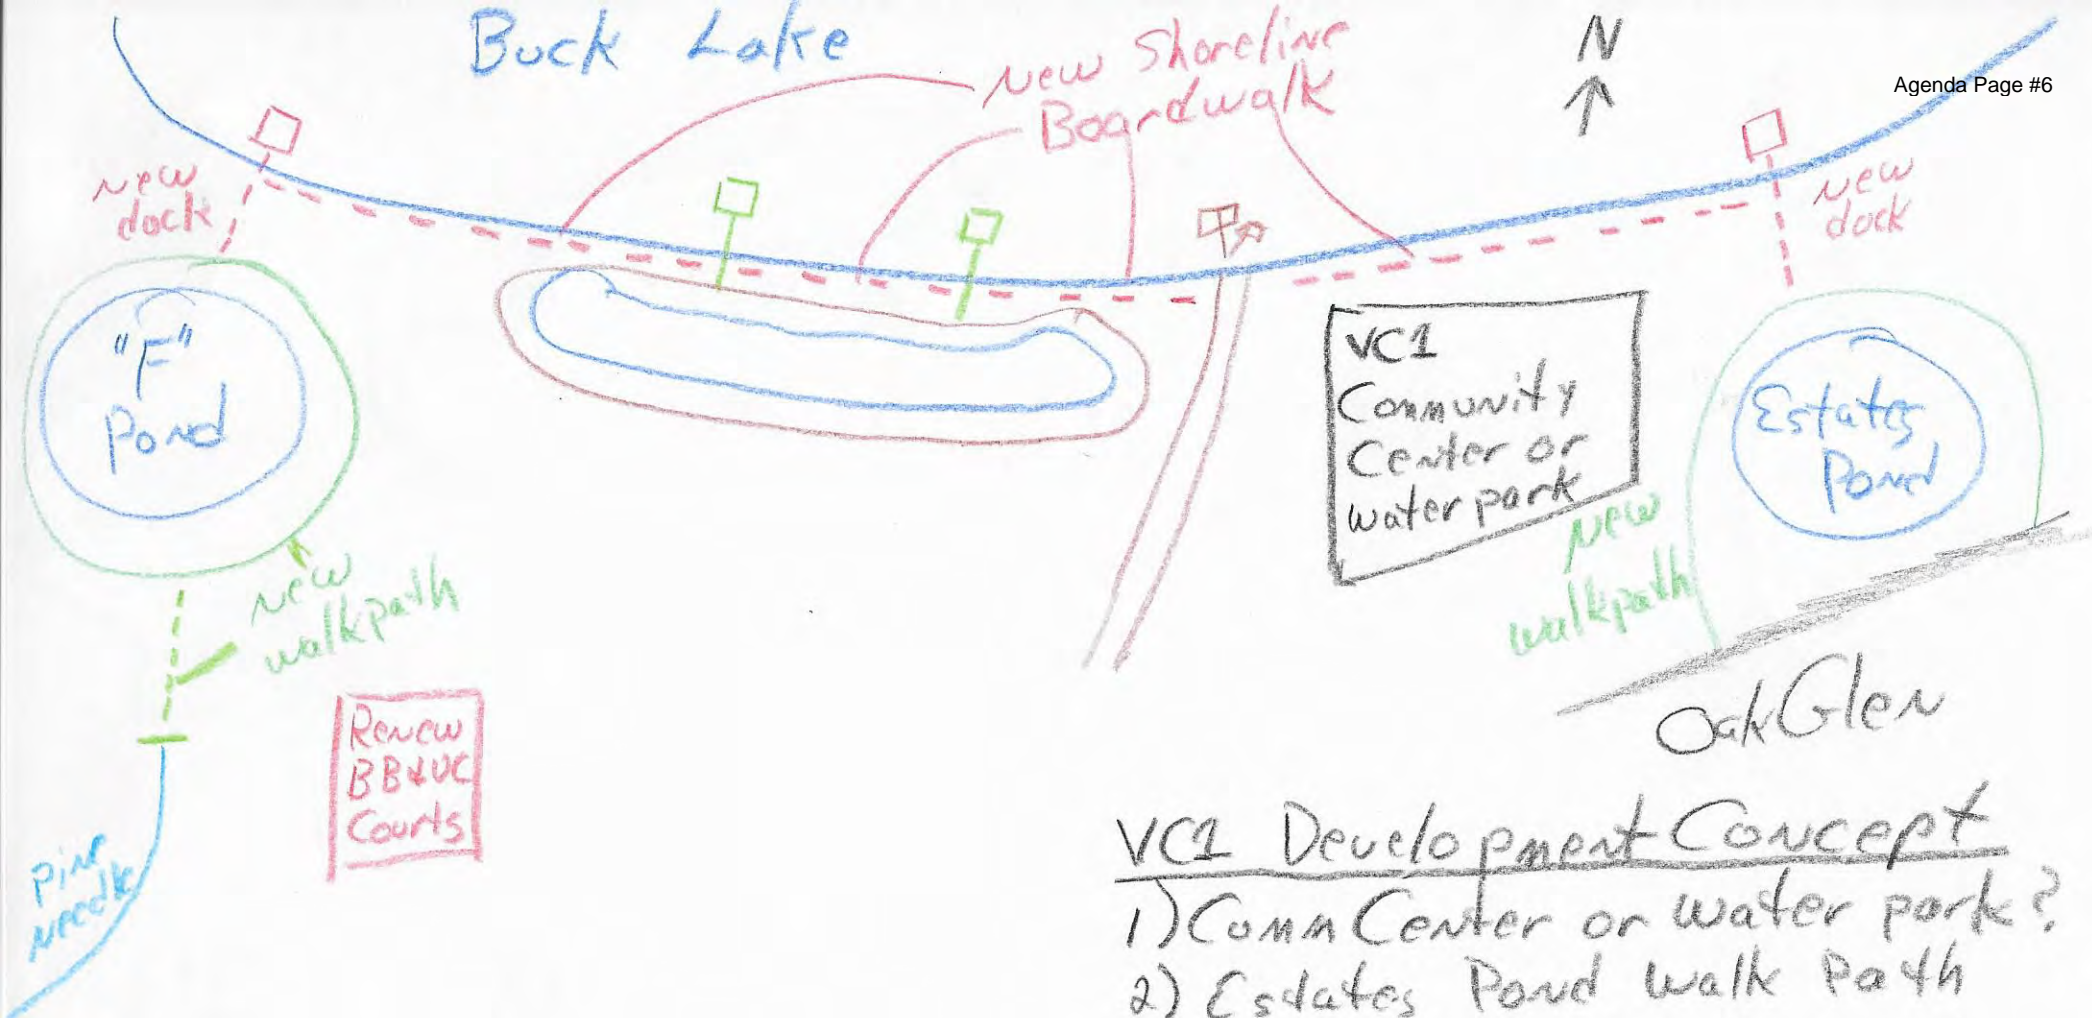 Buck Lake
New Shoreline
Boardwalk
N
Agenda Page #6
New
dock
New
dock
"F"
Pond
VC1
Community
Center or
water park
Estates
Pond
New
walkpath
New
walkpath
Renew
BB & VC
Courts
Oak Glen
Pine
Needle
VC1 Development Concept
1) Comm Center or water park?
2) Estates Pond Walk Path